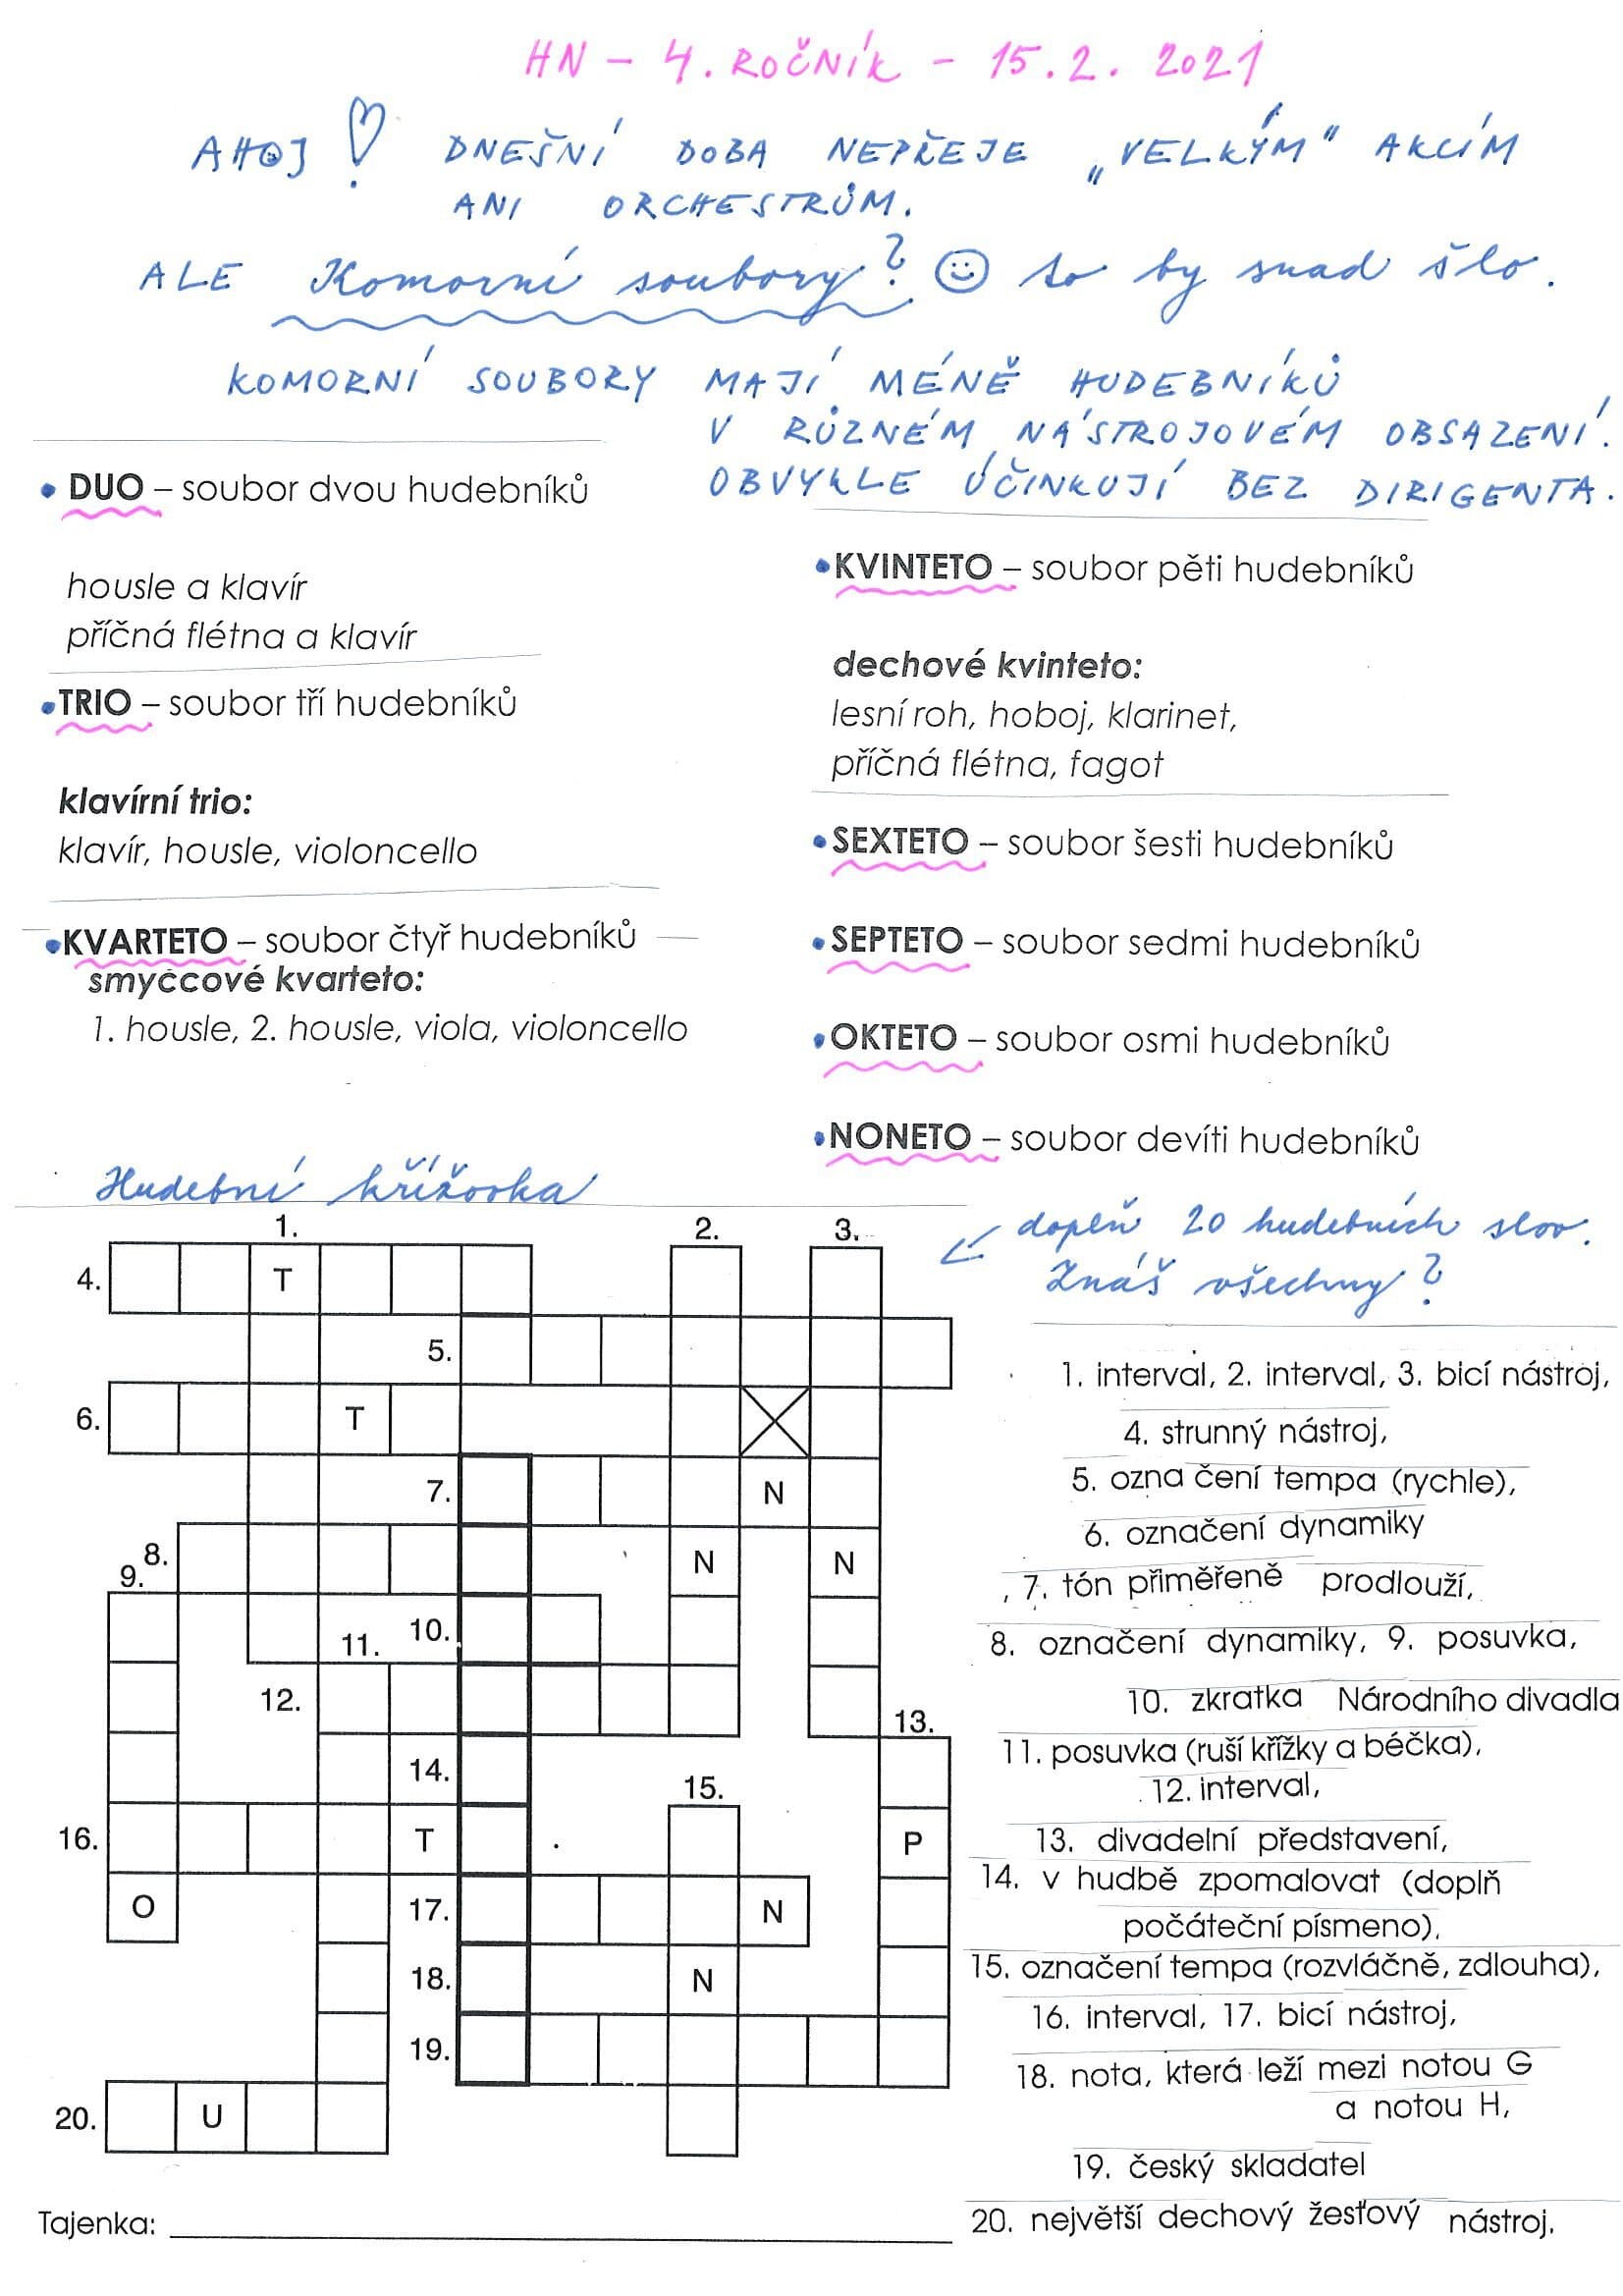 HN – 4. ROČNÍK – 15.2. 2021
AHOJ! DNEŠNÍ DOBA NEPŘEJE „VELKÝM" AKCÍM
ANI ORCHESTRŮM.
ALE Komorní soubory? to by snad šlo.
KOMORNÍ SOUBORY MAJÍ MÉNĚ HUDEBNÍKŮ
V RŮZNÉM NÁSTROJOVÉM OBSAZENÍ.
OBVYKLE ÚČINKUJÍ BEZ DIRIGENTA.
• DUO – soubor dvou hudebníků
housle a klavír
příčná flétna a klavír
• TRIO – soubor tří hudebníků
klavírní trio:
klavír, housle, violoncello
• KVARTETO – soubor čtyř hudebníků
smyčcové kvarteto:
1. housle, 2. housle, viola, violoncello
• KVINTETO – soubor pěti hudebníků
dechové kvinteto:
lesní roh, hoboj, klarinet,
příčná flétna, fagot
• SEXTETO – soubor šesti hudebníků
• SEPTETO – soubor sedmi hudebníků
• OKTETO – soubor osmi hudebníků
• NONETO – soubor devíti hudebníků
Hudební křížovka
doplň 20 hudebních slov.
Znáš všechny?
1. 2. 3.
4. T
5.
6. T
7. N
8. N N
9.
10.
11.
12.
13.
14.
15.
16. T P
O 17. N
18. N
19.
20. U
Tajenka:
1. interval, 2. interval, 3. bicí nástroj,
4. strunný nástroj,
5. ozna čení tempa (rychle),
6. označení dynamiky
, 7. tón přiměřeně prodlouží,
8. označení dynamiky, 9. posuvka,
10. zkratka Národního divadla
11. posuvka (ruší křížky a béčka),
12. interval,
13. divadelní představení,
14. v hudbě zpomalovat (doplň
počáteční písmeno),
15. označení tempa (rozvláčně, zdlouha),
16. interval, 17. bicí nástroj,
18. nota, která leží mezi notou G
a notou H,
19. český skladatel
20. největší dechový žesťový nástroj.